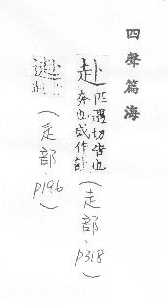 四聲篇海
赴 匹遇切告也
奔也或作訃
(走部,p318)
(辵部,p196)